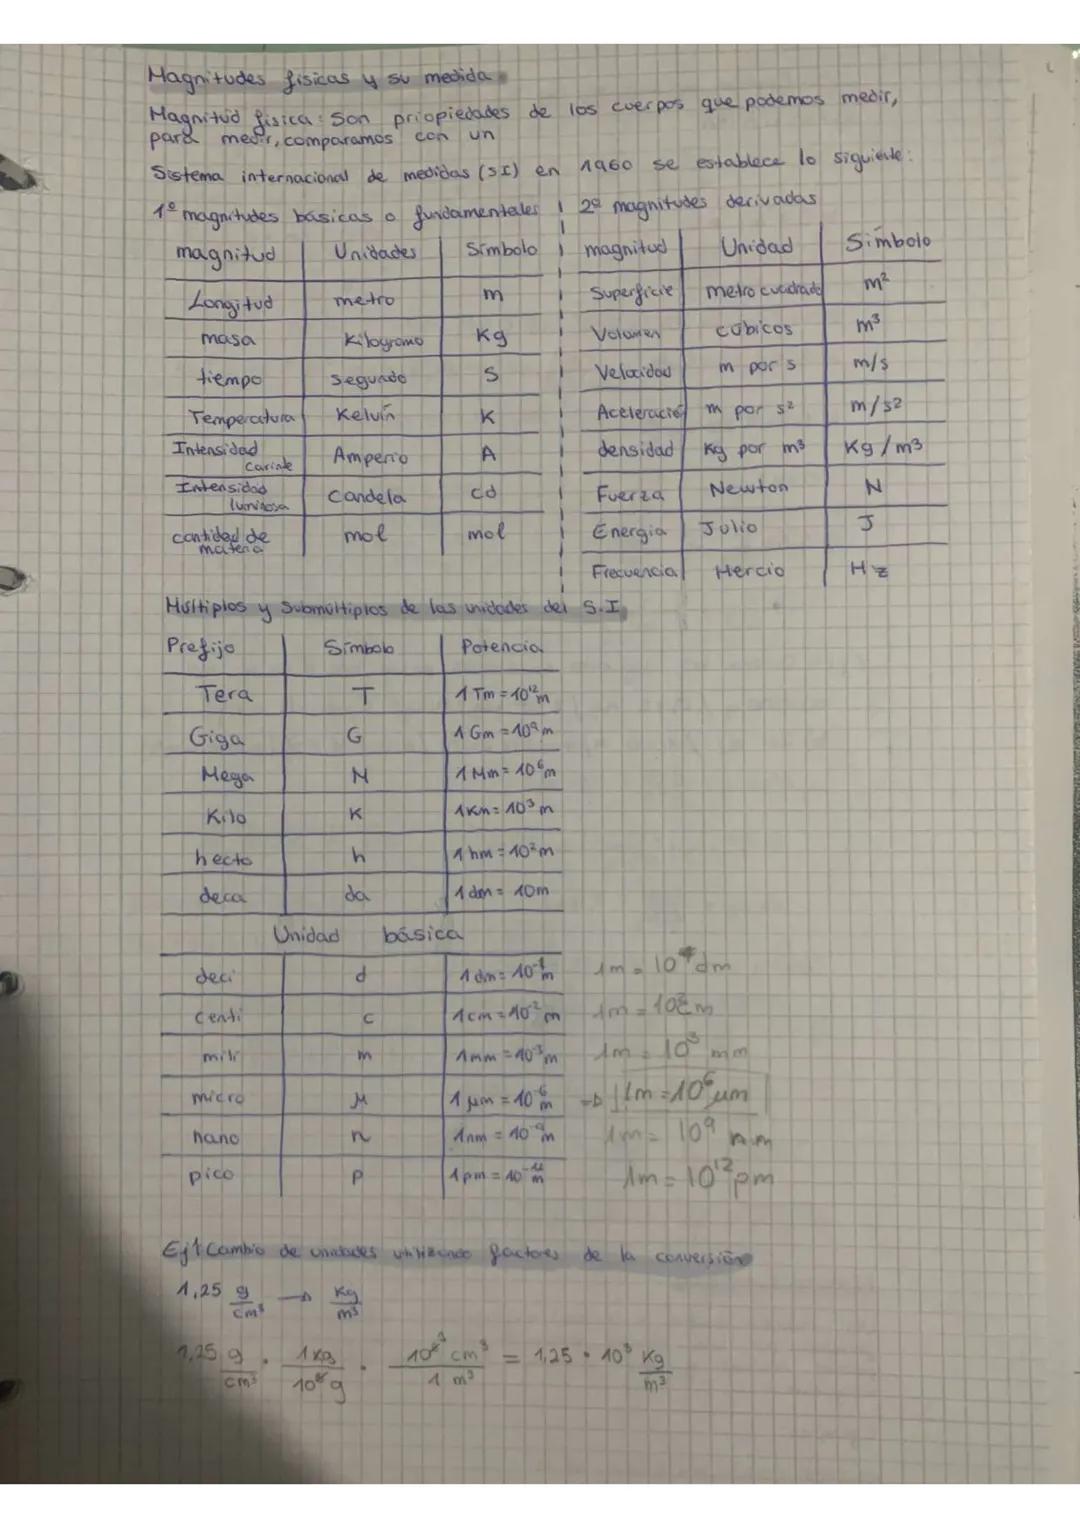 Magnitudes fisicas y su medida
Magnitud fisica: Son priopiedades de los cuerpos que podemos medir,
para medir, comparamos con un
Sistema internacional de medidas (SI) en 1960 se establece lo siguiente:
1º magnitudes básicas o fundamentales
magnitud Unidades Símbolo
Longitud metro m
masa Kilogramo Kg
tiempo segundo S
Temperatura Kelvin K
Intensidad
Amperio A
Intensidad
luminosa Candela cd
cantidad de
materia mol mol
2º magnitudes derivadas
magnitud Unidad Símbolo
Superficie metro cuadrado m²
Volumen cúbicos m³
Velocidad m por s m/s
Aceleració m por s² m/s²
densidad Kg por m³ Kg/m³
Fuerza Newton N
Energia Julio J
Frecuencia Hercio Hz
Múltiplos y Submúltiplos de las unidades del S.I
Prefijo Símbolo Potencia
Tera T 1 Tm = 10¹² m
Giga G 1 Gm = 10⁹ m
Mega M 1 Mm = 10⁶ m
Kilo K 1 Km = 10³ m
hecto h 1 hm = 10² m
deca da 1 dm = 10m
Unidad básica
deci d 1 dm = 10⁻¹ m 1m = 10 dm
centi c 1 cm = 10⁻² m 1m = 10² cm
mili m 1 mm = 10⁻³ m 1m = 10³ mm
micro μ 1 μm = 10⁻⁶ m ⇒ 1m = 10⁶ μm
nano n 1 nm = 10⁻⁹ m 1m = 10⁹ nm
pico p 1 pm = 10⁻¹² m 1m = 10¹² pm
Ej1 Cambio de unidades utilizando factores de la conversión
1,25 g/cm³ → Kg/m³
1,25 g/cm³ · 1 Kg/10³ g · 10⁶ cm³/1 m³ = 1,25 · 10³ Kg/m³